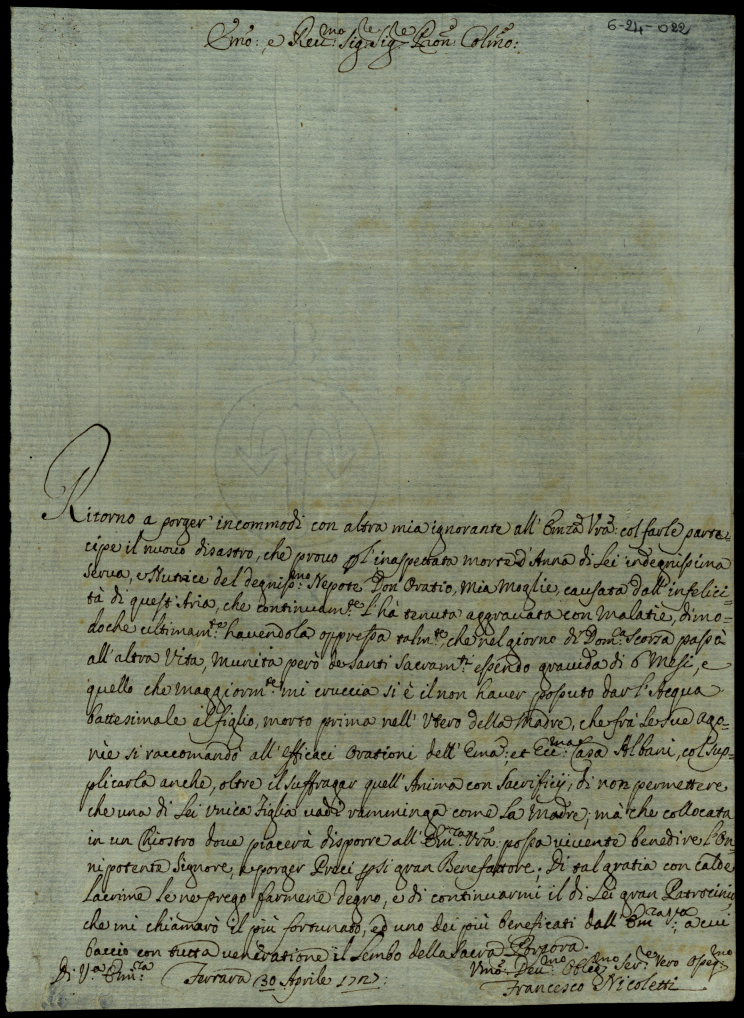 6-24-022
Emo: e Rev:mo Sig:re Sig:re Pron: Colmo:
Ritorno a porger incommodi con altra mia ignorante all' Emza Vra: col farle parte-
cipe il nuovo disastro, che provo p l'inaspettata morte d'Anna di Lei indegnissima
serva, e Nutrice del degniss:mo Nepote Don Oratio, Mia Moglie, causata dall' infelici-
tà di quest'Aria, che continuam:te l'hà tenuta aggravata con Malatie, dimo-
doche ultimam:te havendola oppressa talm:te, che nel giorno di Dom:ca scorsa passò
all'altra Vita, Munita però de Santi Sacram:ti essendo gravida di 6 Mesi, e
quello che maggiorm:te mi cruccia si è il non haver possuto dar l'Acqua
battesimale al figlio, morto prima nell'Utero della Madre, che frà le sue ago-
nie si raccomandò all'efficaci Orationi dell'Ema: et Ecc:ma Casa Albani, col sup-
plicarla anche, oltre il suffragar quell'Anima con Sacrificij, di non permettere
che una di Lei Unica Figlia vadi ramminga come la Madre; mà che collocata
in un Chiostro dove piacerà disporre all'Em:za Vra: possa vivente benedire l'On-
nipotente Signore, e porger Preci p si gran Benefattore. Di tal gratia con calde
Lacrime le ne prego farmene degno, e di continuarmi il di Lei gran Patrocinio
che mi chiamarò il più fortunato, ed uno dei più beneficati dall'Em:za Va: a cui
baccio con tutta veneratione il Lembo della Sacra Porpora.
Di V:a Em:za Ferrara 30 Aprile 1712:
Umo: Dev:mo Oblig:mo Ser:re Vero Osseq:mo
Francesco Nicoletti